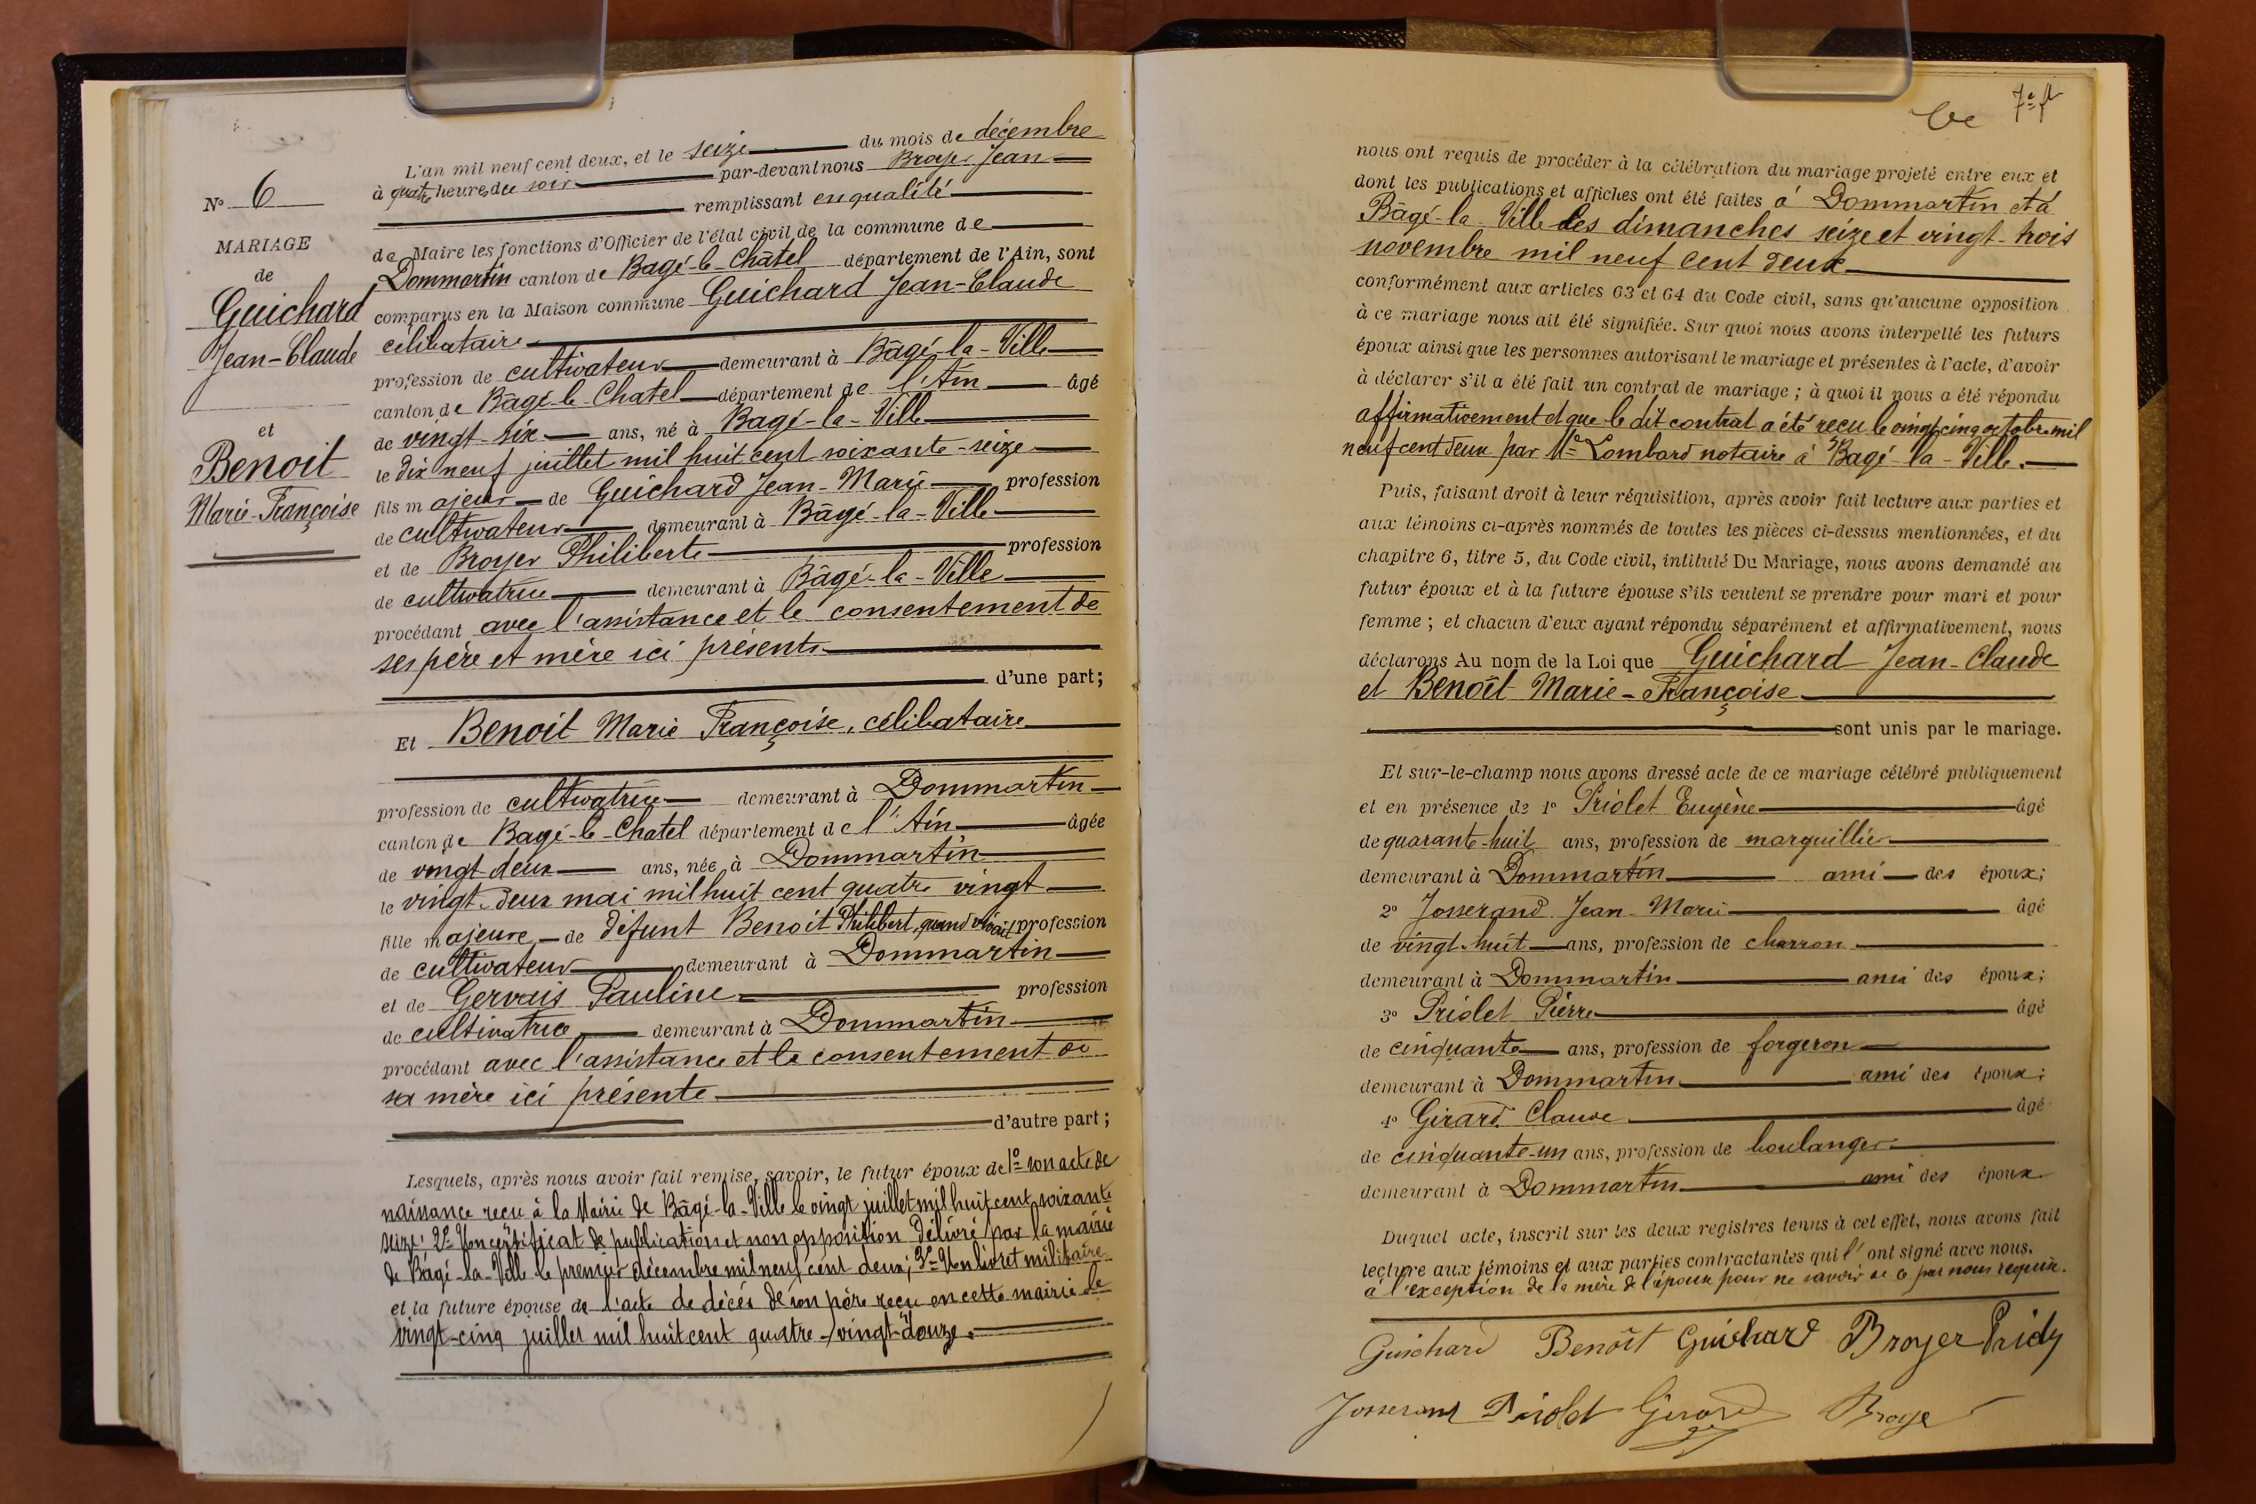 N° 6
MARIAGE
de
Guichard
Jean-Claude
et
Benoit
Marie-Françoise
L'an mil neuf cent deux, et le seize du mois de décembre
à quatre heures du soir par-devant nous Broye Jean
remplissant en qualité
de Maire les fonctions d'Officier de l'état civil de la commune de
Dommartin canton de Bagé-le-Chatel département de l'Ain, sont
comparus en la Maison commune Guichard Jean-Claude
célibataire
profession de cultivateur demeurant à Bâgé-la-Ville
canton de Bâgé-le-Chatel département de l'Ain âgé
de vingt-six ans, né à Bagé-la-Ville
le dix neuf juillet mil huit cent soixante-seize
fils majeur de Guichard Jean-Marie profession
de cultivateur demeurant à Bâgé-la-Ville
et de Broyer Philiberte profession
de cultivatrice demeurant à Bâgé-la-Ville
procédant avec l'assistance et le consentement de
ses père et mère ici présents
d'une part;
Et Benoit Marie Françoise, célibataire
profession de cultivatrice demeurant à Dommartin
canton de Bagé-le-Chatel département de l'Ain, âgée
de vingt-deux ans, née à Dommartin
le vingt-deux mai mil huit cent quatre vingt
fille majeure de défunt Benoit Philibert, quand vivait profession
de cultivateur demeurant à Dommartin
et de Gervais Pauline profession
de cultivatrice demeurant à Dommartin
procédant avec l'assistance et le consentement de
sa mère ici présente
d'autre part;
Lesquels, après nous avoir fait remise, savoir, le futur époux de 1° son acte de
naissance reçu à la Mairie de Bâgé-la-Ville le vingt juillet mil huit cent soixante
seize; 2° Un certificat de publication et non opposition délivré par la mairie
de Bâgé-la-Ville le premier décembre mil neuf cent deux; 3° Un livret militaire
et la future épouse de l'acte de décés de son père reçu en cette mairie le
vingt-cinq juillet mil huit cent quatre-vingt-douze.
7e ft
nous ont requis de procéder à la célébration du mariage projeté entre eux et
dont les publications et affiches ont été faites à Dommartin et à
Bâgé-la-Ville les dimanches seize et vingt-trois
novembre mil neuf cent deux
conformément aux articles 63 et 64 du Code civil, sans qu'aucune opposition
à ce mariage nous ait été signifiée. Sur quoi nous avons interpellé les futurs
époux ainsi que les personnes autorisant le mariage et présentes à l'acte, d'avoir
à déclarer s'il a été fait un contrat de mariage; à quoi il nous a été répondu
affirmativement et que le dit contrat a été reçu le vingt cinq octobre mil
neuf cent deux par Me Lombard notaire à Bagé-la-Ville.
Puis, faisant droit à leur réquisition, après avoir fait lecture aux parties et
aux témoins ci-après nommés de toutes les pièces ci-dessus mentionnées, et du
chapitre 6, titre 5, du Code civil, intitulé Du Mariage, nous avons demandé au
futur époux et à la future épouse s'ils veulent se prendre pour mari et pour
femme; et chacun d'eux ayant répondu séparément et affirmativement, nous
déclarons Au nom de la Loi que Guichard Jean-Claude
et Benoît Marie-Françoise
sont unis par le mariage.
Et sur-le-champ nous avons dressé acte de ce mariage célébré publiquement
et en présence de 1° Priolet Eugène âgé
de quarante-huit ans, profession de marguillier
demeurant à Dommartin ami des époux;
2° Josserand Jean-Marie âgé
de vingt-huit ans, profession de charron
demeurant à Dommartin ami des époux;
3° Priolet Pierre âgé
de cinquante ans, profession de forgeron
demeurant à Dommartin ami des époux;
4° Girard Claude âgé
de cinquante-un ans, profession de boulanger
demeurant à Dommartin ami des époux
Duquel acte, inscrit sur les deux registres tenus à cet effet, nous avons fait
lecture aux témoins et aux parties contractantes qui l'ont signé avec nous.
à l'exception de la mère de l'époux pour ne savoir de ce par nous requise.
Guichard Benoît Guichard Broyer
Josserand Priolet Girard Broye